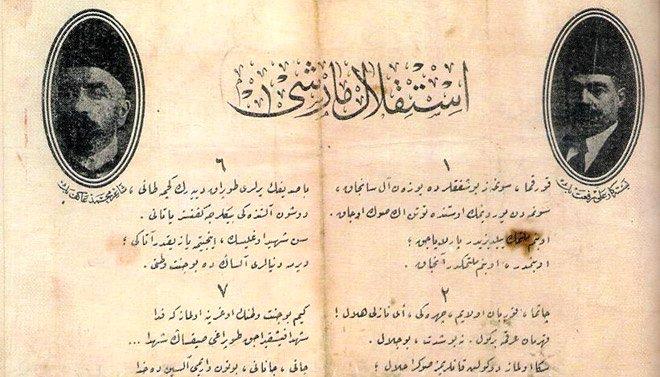 استقلال مارشی
بسته‌كار علی رفعت بك
شاعر محمد عاكف بك
١
قورقما ، سونمز بو شفقلرده یوزن آل سانجاق ،
سونمه‌دن یوردیمك اوستنده توتن اك صوك اوجاق .
او بنم ملتمك ییلدیزیدر پارلایاجق ؛
او بنمدر ، او بنم ملتمكدر آنجاق .
٢
چاتما ، قوربان اولایم ، چهره‌كی ، ای نازلی هلال !
قهرمان عرقمه بر كول .. نه بو شدت ، بو جلال .
سكا اولماز دوكولن قانلریمز صوكرا حلال !
٦
باصدیغك یرلری طوپراق دییه‌رك كچمه طانی ،
دوشون آلتنده‌كی بیكلرجه كفنسز یاتانی .
سن شهید اوغلیسك ، اینجیتمه یازیقدر آتاكی ؛
ویرمه دنیالری آلساك ده بو جنت وطنی .
٧
كیم بو جنت وطنك اوغرینه اولماز كه فدا
شهدا فیشقراجق طوپراغی صیقساك شهدا ...
جانی ، جانانی ، بوتون واریمی آلسین ده خدا